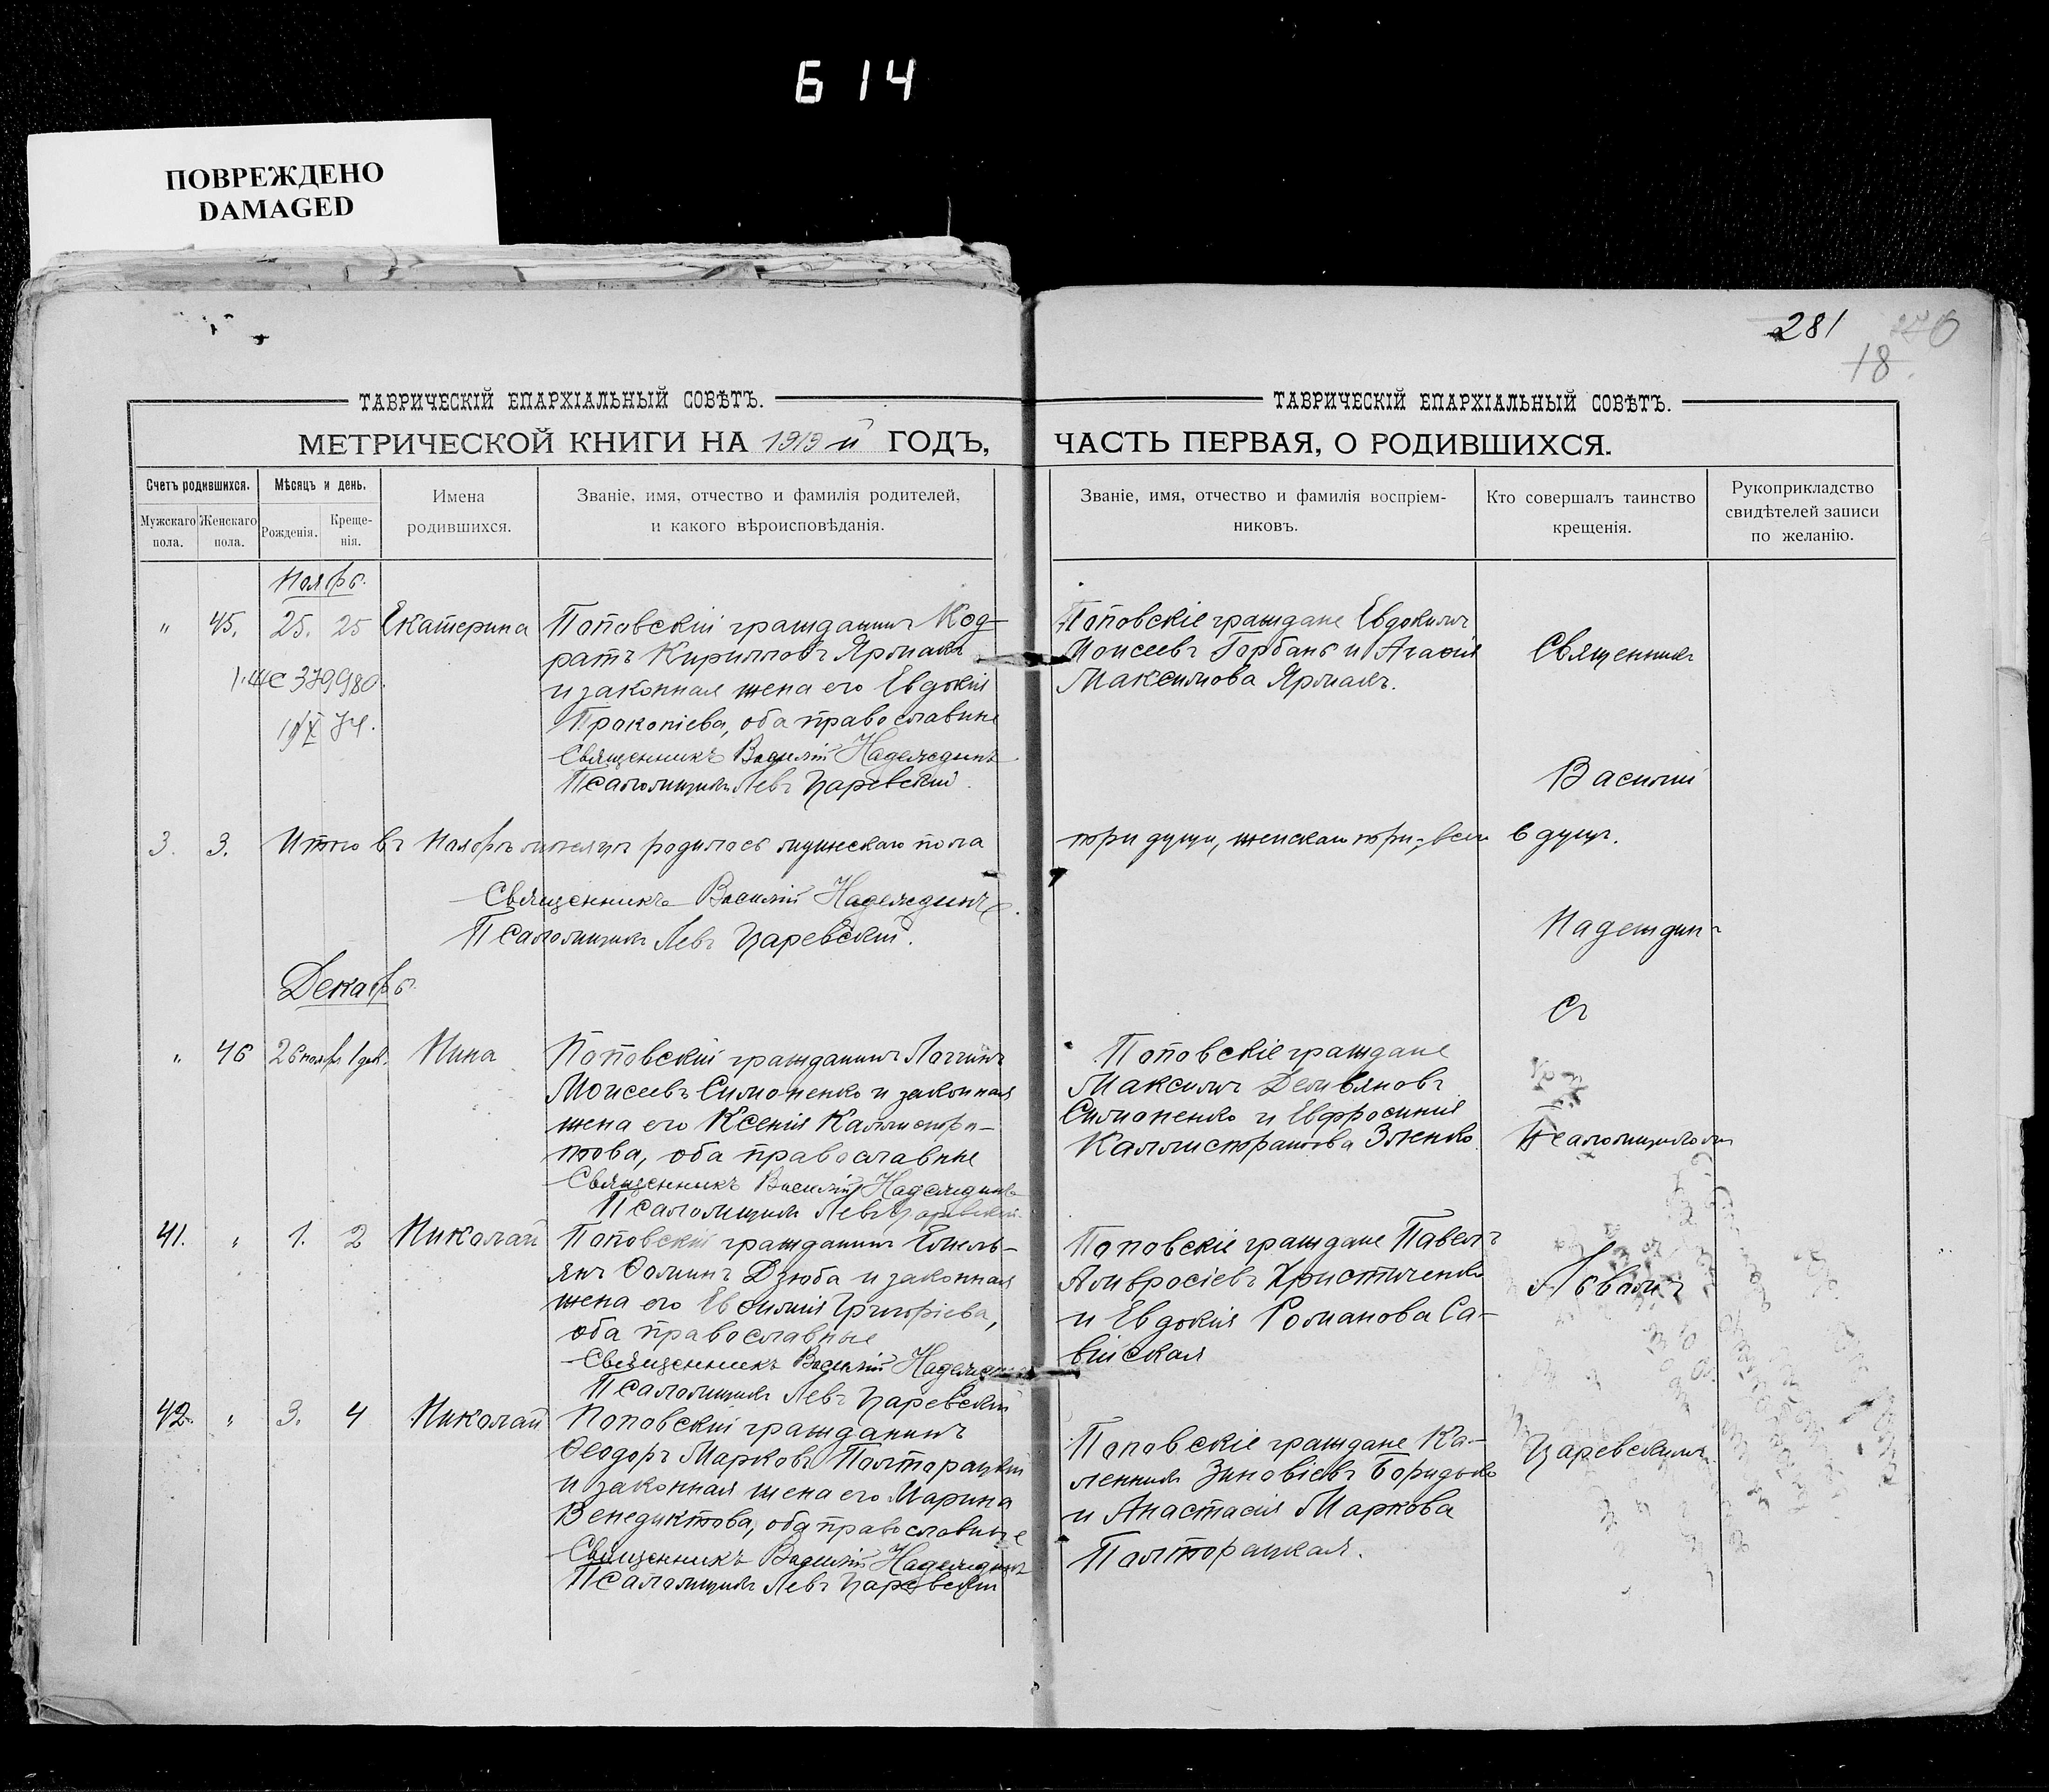 614
ПОВРЕЖДЕНО
DAMAGED
281
18.
ТАВРИЧЕСКІЙ ЕПАРХІАЛЬНЫЙ СОВѢТЪ.
МЕТРИЧЕСКОЙ КНИГИ НА 1919 й ГОДЪ,
Счетъ родившихся.
Мѣсяцъ и день.
Имена родившихся.
Званіе, имя, отчество и фамилія родителей,
и какого вѣроисповѣданія.
Мужскаго пола.
Женскаго пола.
Рожденія.
Крещенія.
ТАВРИЧЕСКІЙ ЕПАРХІАЛЬНЫЙ СОВѢТЪ.
ЧАСТЬ ПЕРВАЯ, О РОДИВШИХСЯ.
Званіе, имя, отчество и фамилія воспріем-
никовъ.
Кто совершалъ таинство
крещенія.
Рукоприкладство
свидѣтелей записи
по желанію.
Ноябрь.
" 45. 25. 25 Екатерина
Поповскій гражданинъ Код-
ратъ Кирилловъ Ярмакъ
и законная жена его Евдокія
Прокопіева, оба православные
Священникъ Василій Надеждинъ
Псаломщикъ Левъ Царевскій.
379980.
Поповскіе граждане Евдокимъ
Моисеевъ Горбань и Агафія
Максимова Ярмакъ.
Священникъ
Василій
3. 3. Итого въ Ноябрѣ мѣсяцѣ родилось мужескаго пола
три души, женскаго три, всѣхъ 6 душъ.
Священникъ Василій Надеждинъ.
Псаломщикъ Левъ Царевскій.
Надеждинъ
Декабрь.
Съ
" 46 26 нояб. 1 дек. Нина
Поповскій гражданинъ Логгинъ
Моисеевъ Симоненко и законная
жена его Ксенія Каллистра-
това, оба православные
Священникъ Василій Надеждинъ
Псаломщикъ Левъ Царевскій
Поповскіе граждане
Максимъ Демьяновъ
Симоненко и Евфросинія
Каллистратова Зленко.
Псаломщикомъ
41. " 1. 2 Николай
Поповскій гражданинъ Емель-
янъ Ѳоминъ Дзюба и законная
жена его Евфимія Григоріева,
оба православные
Священникъ Василій Надеждинъ
Псаломщикъ Левъ Царевскій
Поповскіе граждане Павелъ
Амвросіевъ Христиченко
и Евдокія Романова Са-
війская
Львомъ
42. " 3. 4 Николай
Поповскій гражданинъ
Ѳеодоръ Марковъ Полторацкій
и законная жена его Марина
Венедиктова, оба православные
Священникъ Василій Надеждинъ
Псаломщикъ Левъ Царевскій
Поповскіе граждане Ка-
ленникъ Зиновіевъ
и Анастасія Маркова
Полторацкая.
Царевскимъ